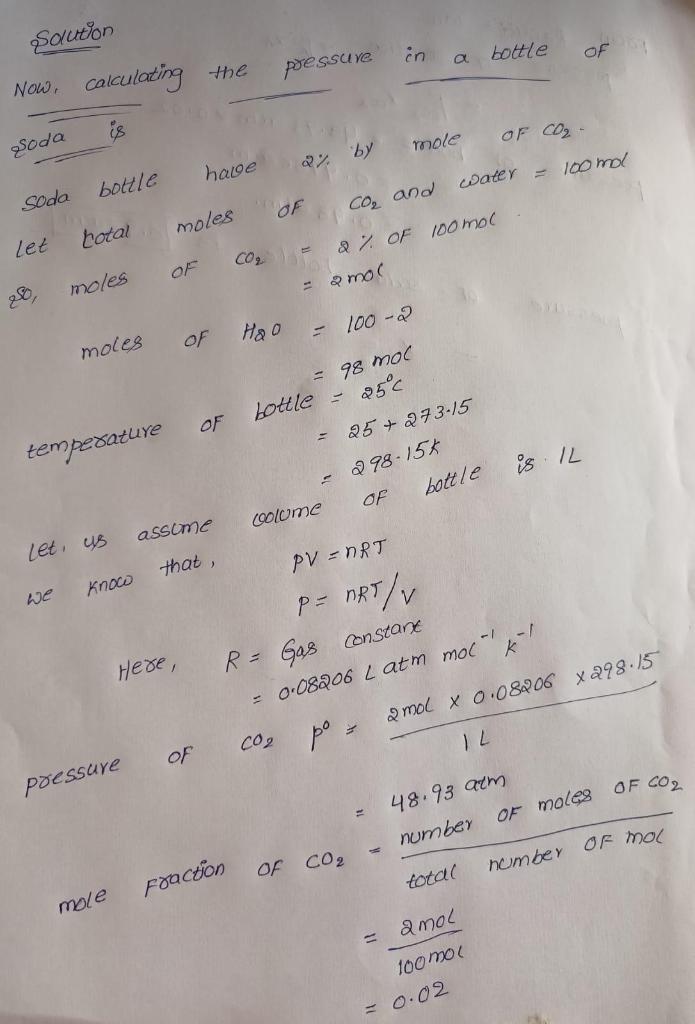 Solution
Now, calculating the pressure in a bottle of
soda is
Soda bottle have 2% by mole of CO₂.
Let total moles of CO₂ and water = 100 mol
So, moles of CO₂ = 2% of 100 mol
= 2 mol
moles of H₂O = 100 - 2
= 98 mol
temperature of bottle = 25°C
= 25 + 273.15
= 298.15K
Let, us assume volume of bottle is 1L
We know that, PV = nRT
P = nRT/V
Here, R = Gas constant
= 0.08206 L atm mol⁻¹ K⁻¹
pressure of CO₂ P° = 2 mol x 0.08206 x 298.15
1 L
= 48.93 atm
mole Fraction of CO₂ = number of moles of CO₂
total number of mol
= 2 mol
100 mol
= 0.02